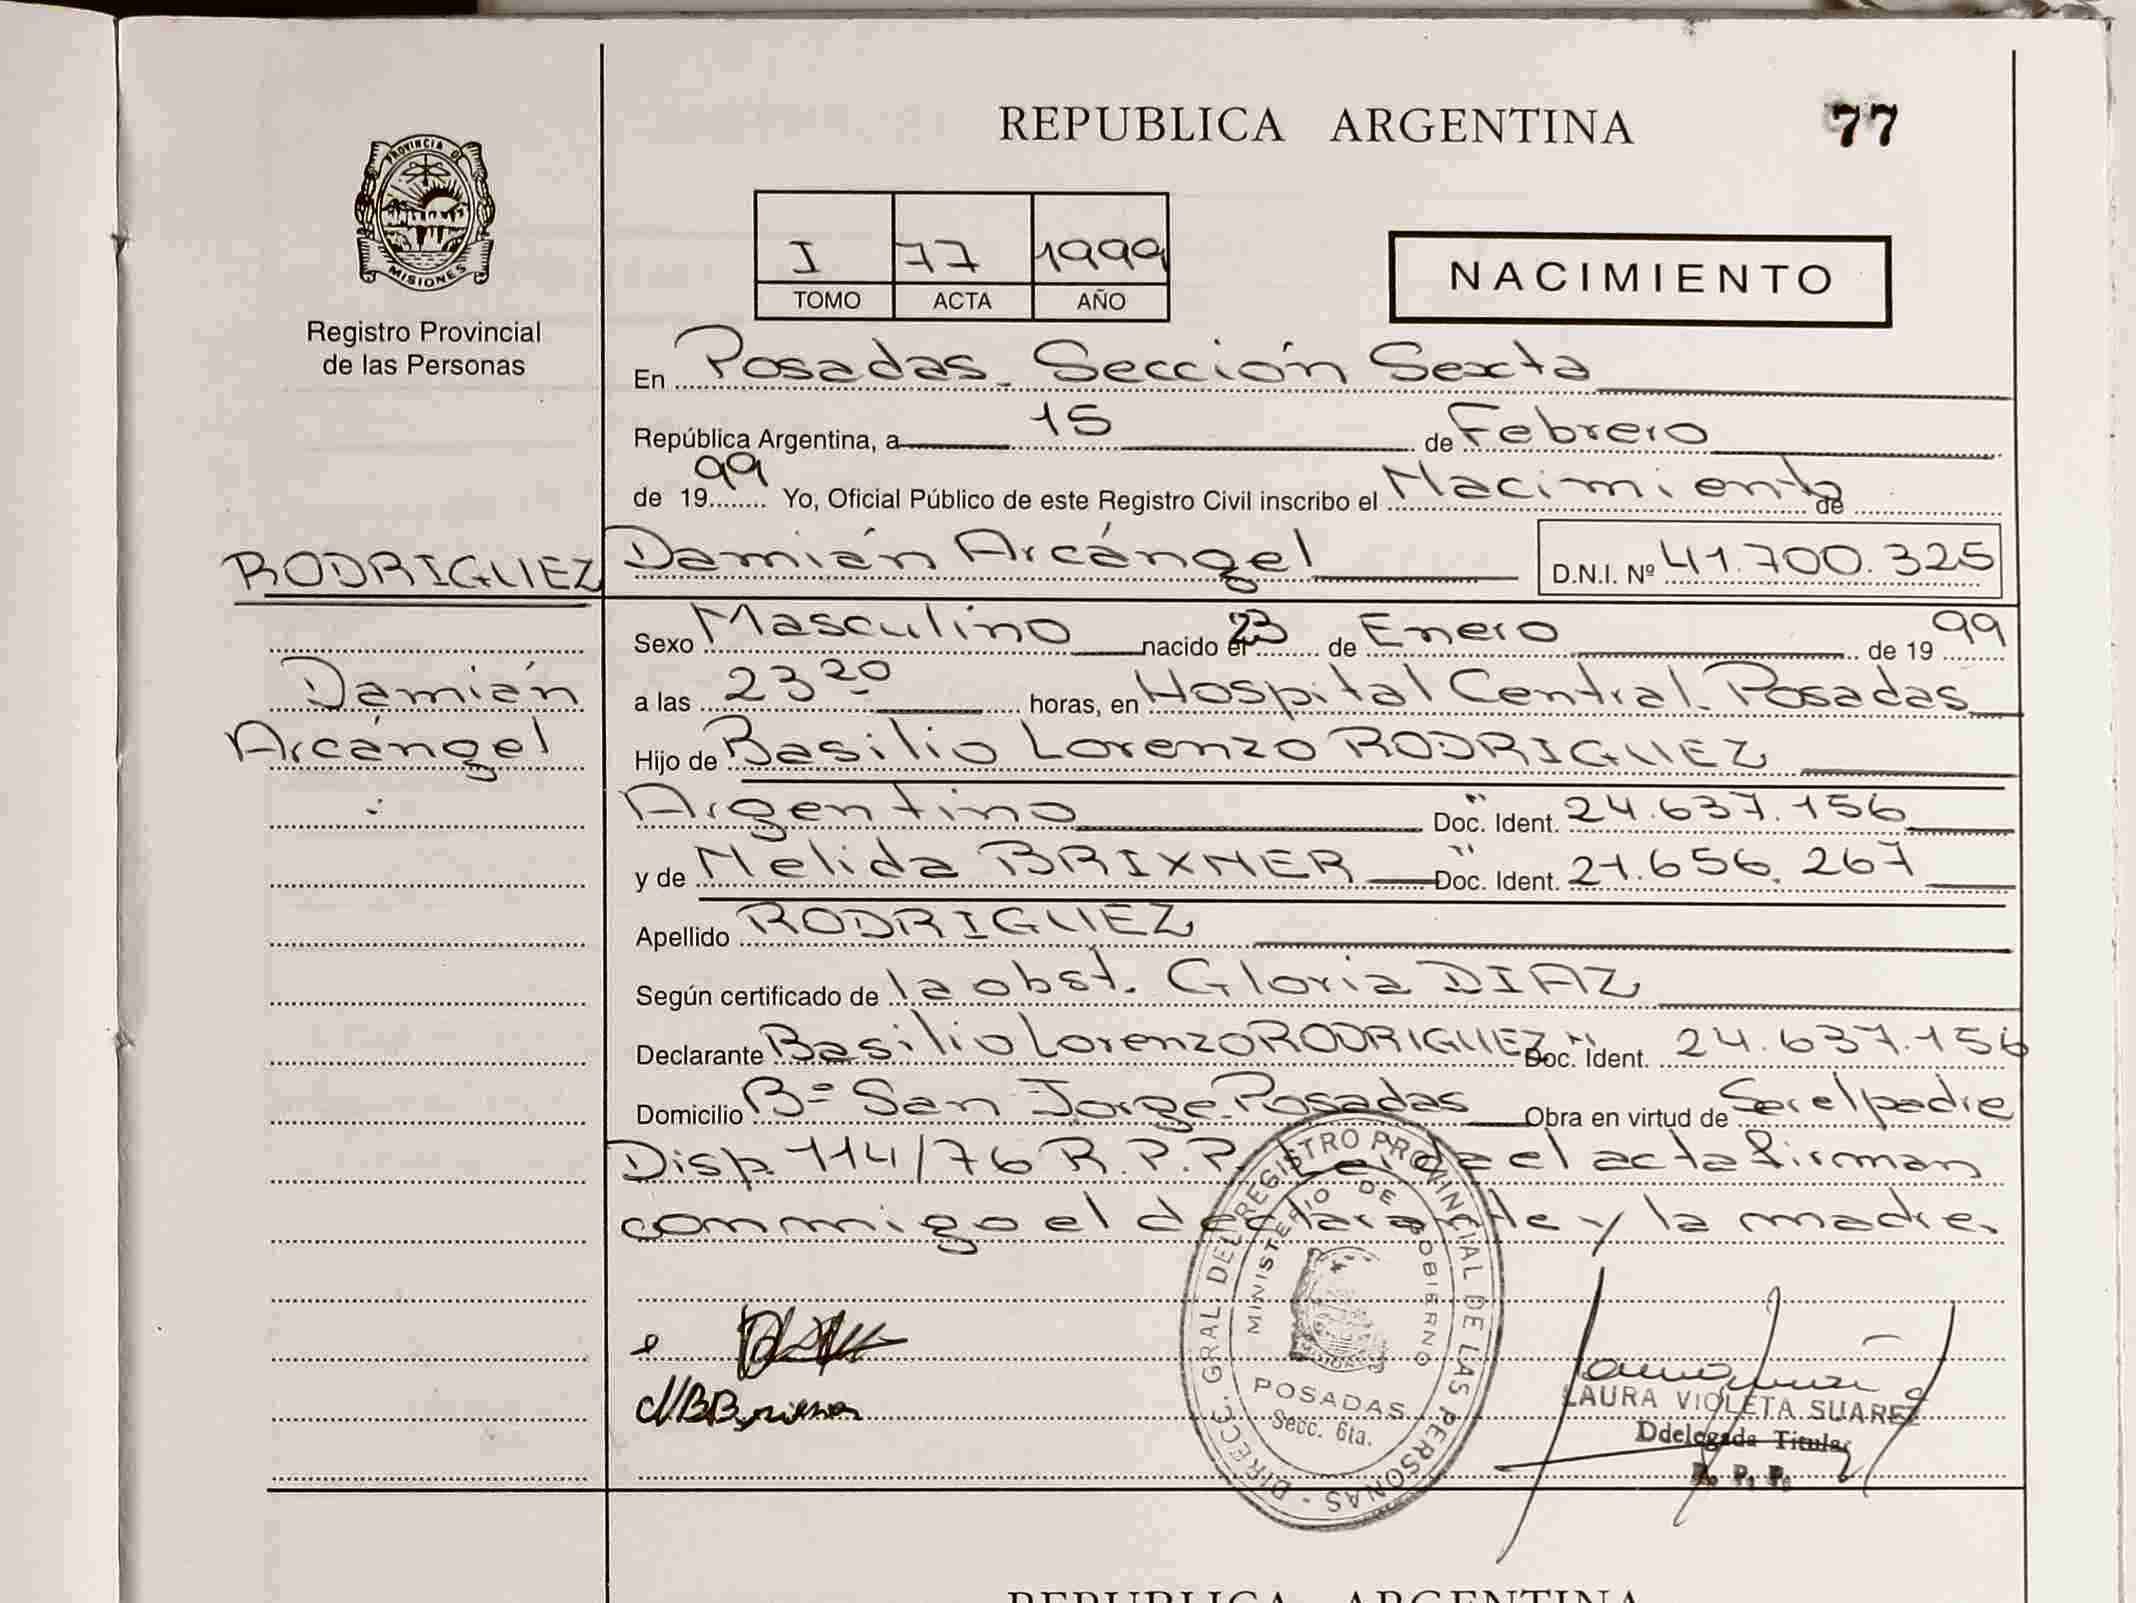 REPUBLICA ARGENTINA
77
PROVINCIA DE
MISIONES
Registro Provincial
de las Personas
I 77 1999
TOMO ACTA AÑO
NACIMIENTO
En Posadas. Sección Sexta
República Argentina, a 15 de Febrero
de 1999 Yo, Oficial Público de este Registro Civil inscribo el Nacimiento de
RODRIGUEZ Damián Arcángel D.N.I. Nº 41.700.325
Sexo Masculino nacido el 23 de Enero de 1999
Damián
a las 23 20 horas, en Hospital Central. Posadas
Arcángel
Hijo de Basilio Lorenzo RODRIGUEZ
Argentino Doc. Ident. 24.637.156
y de Nelida BRIXNER Doc. Ident. 21.656.267
Apellido RODRIGUEZ
Según certificado de la obst. Gloria DIAZ
Declarante Basilio Lorenzo RODRIGUEZ Doc. Ident. 24.637.156
Domicilio Bº San Jorge. Posadas Obra en virtud de Ser el padre
Disp. 114/76 R.P.P. Leída el acta firman
conmigo el declarante y la madre.
DIRECC. GRAL DEL REGISTRO PROVINCIAL DE LAS PERSONAS -
MINISTERIO DE GOBIERNO
MISIONES
POSADAS
Secc. 6ta.
LAURA VIOLETA SUAREZ
Ddelegada Titular
R. P. P.
REPUBLICA ARGENTINA